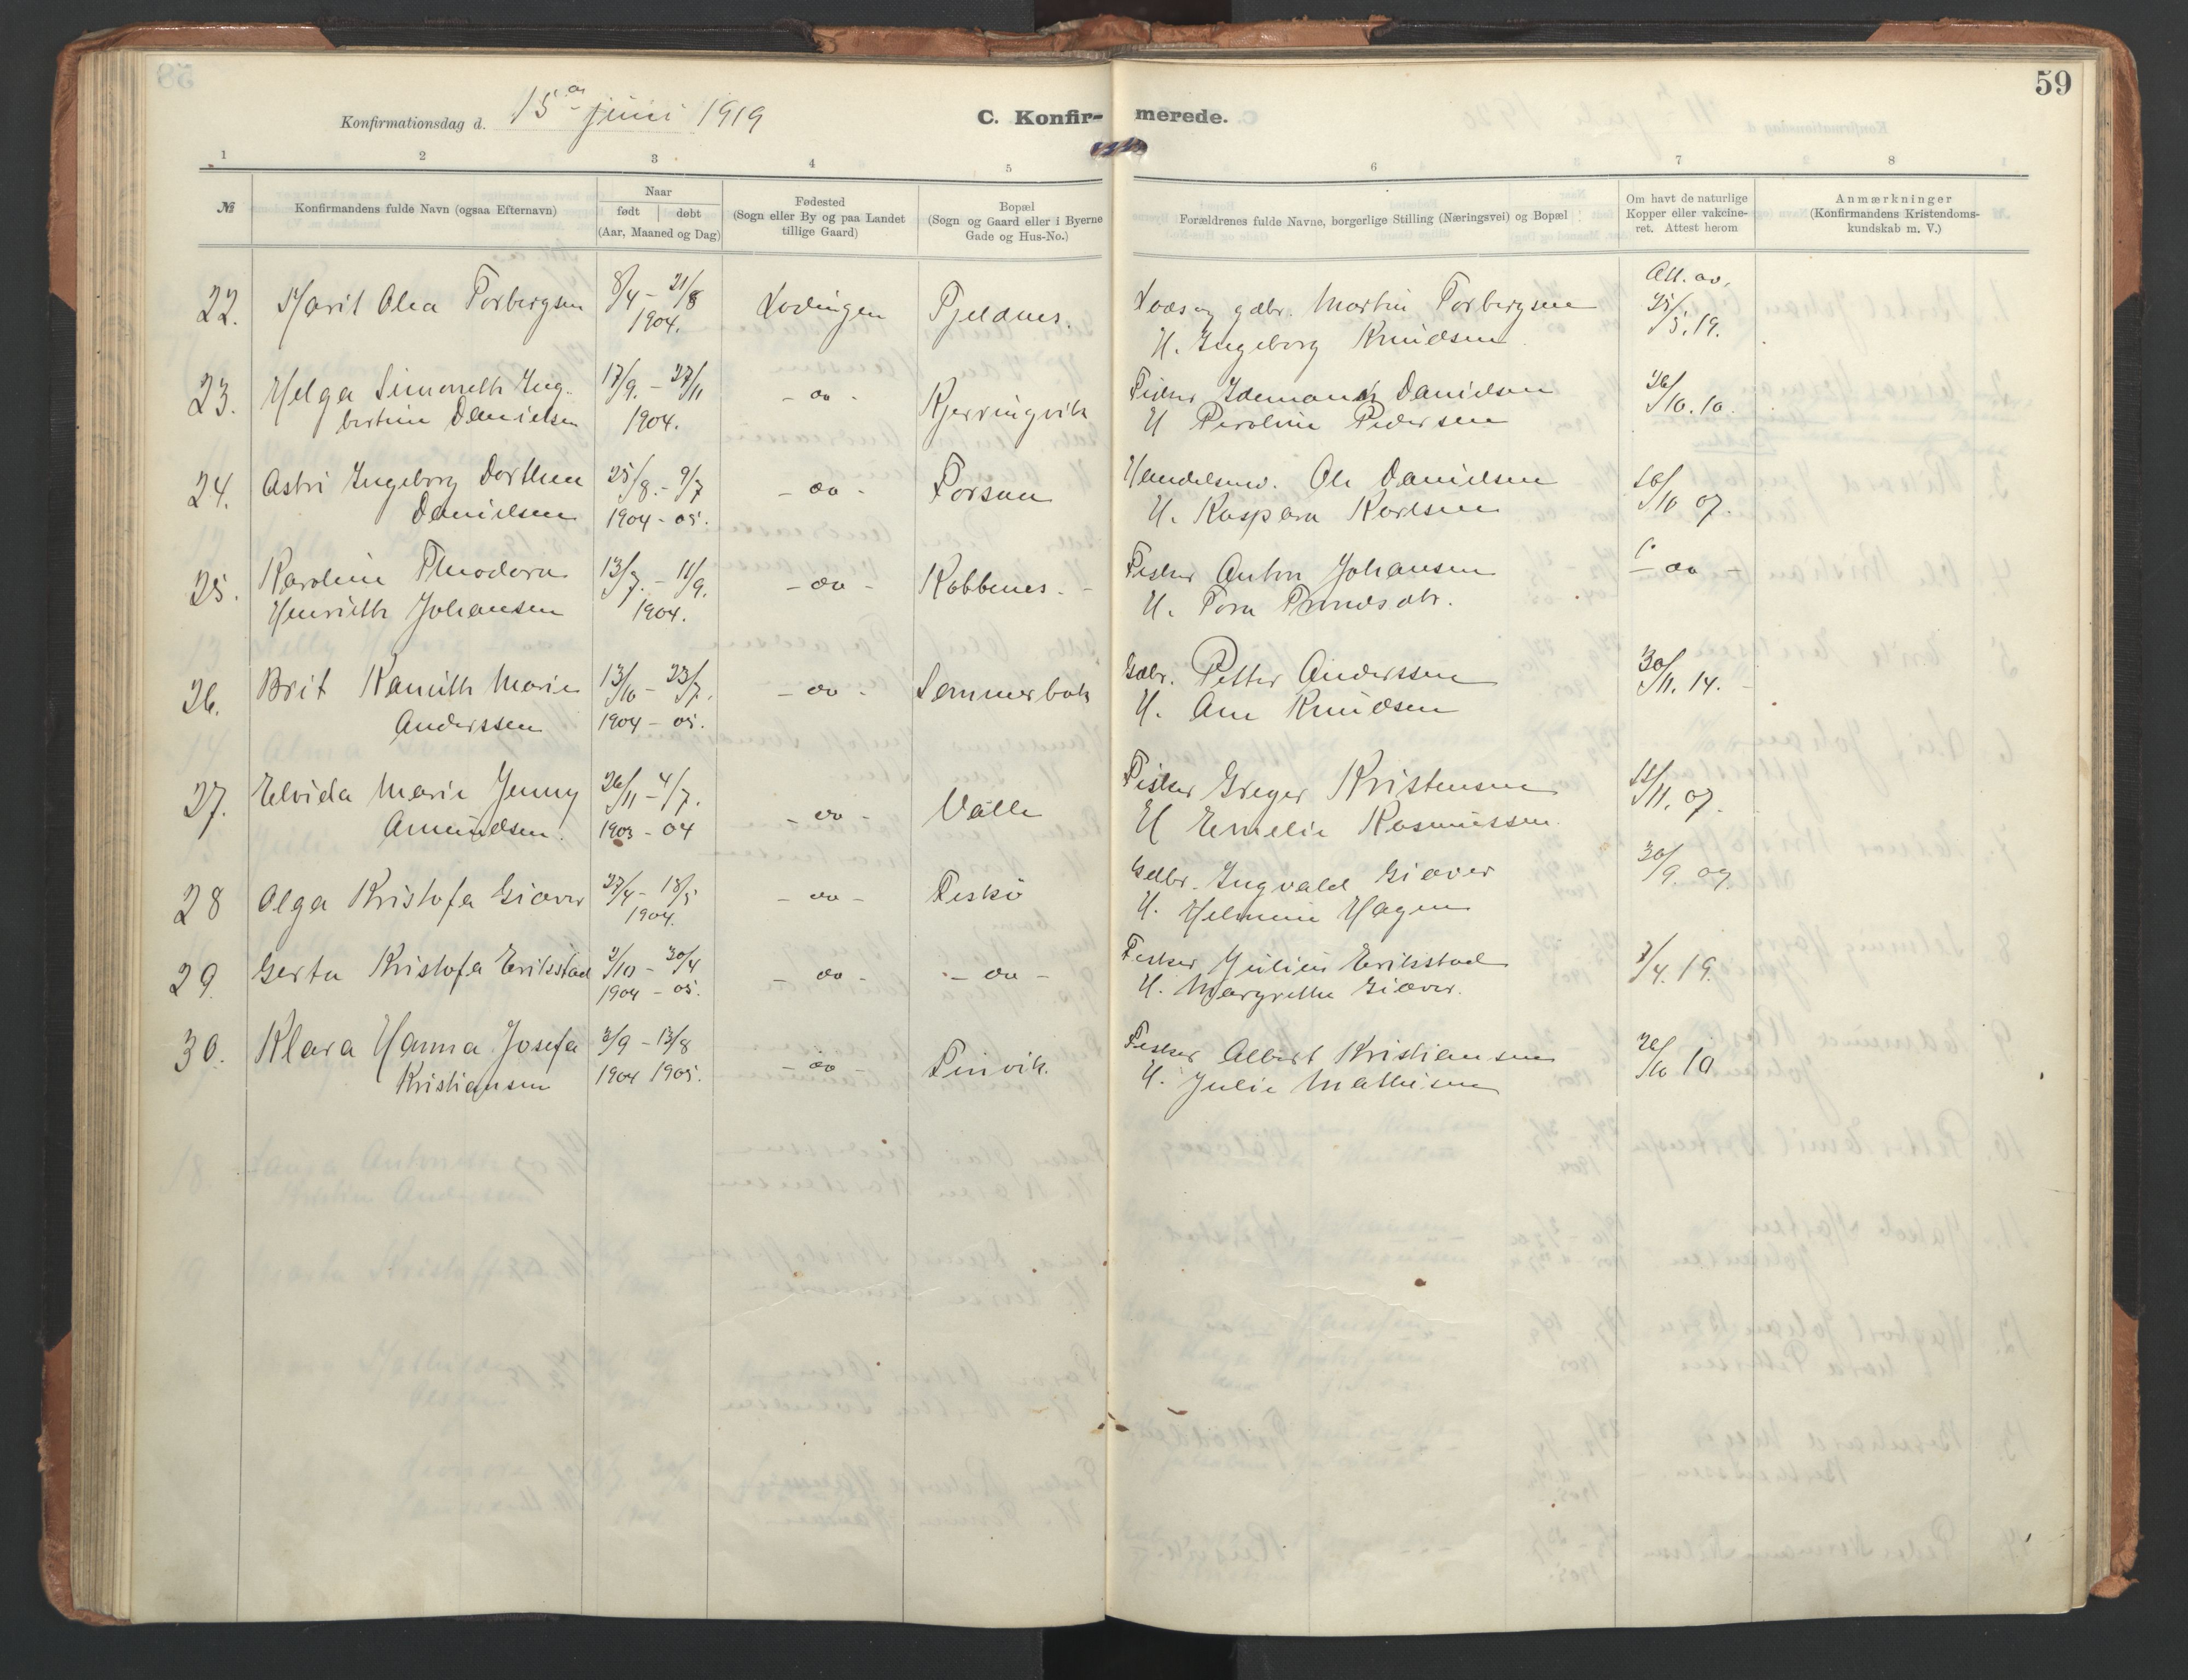 59
Konfirmationsdag d. 15de juni 1919
C. Konfir- merede.
1 2 3 4 5 6 7 8
№
Konfirmandens fulde Navn (ogsaa Efternavn)
Naar
født | døbt
(Aar, Maaned og Dag)
Fødested
(Sogn eller By og paa Landet
tillige Gaard)
Bopæl
(Sogn og Gaard eller i Byerne
Gade og Hus-No.)
Forældrenes fulde Navne, borgerlige Stilling (Næringsvei) og Bopæl
Om havt de naturlige
Kopper eller vakcine-
ret. Attest herom
Anmærkninger
(Konfirmandens Kristendoms-
kundskab m. V.)
22. Marit Olea Torbergsen 8/4 - 21/8 Lødingen Tjeldnes. Lods og gdbr. Martin Torbergsen Att. av.
1904. H. Ingeborg Knudsen 25/5. 19.
23. Helga Simonette Ing- 17/9. - 27/11 - do - Kjerringvik Fisker Idemann Danielsen 26/10. 10.
bertine Danielsen 1904. H Peroline Pedersen
24. Astri Ingeborg Dorthea 25/8. - 9/7 - do - Forsaa Handelsm. Ole Danielsen 16/10 07.
Danielsen 1904 - 05. H. Kaspara Karlsen
25. Karoline Theodora 13/7. - 11/9. - do - Kobbenes. Fisker Anton Johansen - do -
Henriette Johansen 1904. H. Tora Trondsdtr.
26. Brit Ranveth Marie 13/10 - 23/7. - do - Sommerbak Gdbr. Petter Anderssen 30/11. 14.
Anderssen 1904 - 05. H. Ane Knudsen
27. Elvida Marie Jenny 26/11 - 4/7. - do - Valle Fisker Greger Kristensen 12/11. 07.
Amundsen 1903 - 04 H Emelie Rasmussen.
28 Olga Kristofa Giæver 27/4 - 18/5 - do - Feskø Gdbr. Ingvald Giæver 30/9. 09.
1904. H. Helmine Hagen
29. Gerta Kristofa Eriksstad 2/10 - 30/4 - do - - do - Fisker Julius Eriksstad 7/4. 19.
1904 - 05. H. Margrethe Giæver.
30. Klara Hanna Josefa 3/9 - 13/8 - do - Finvik. Fisker Albert Kristiansen 26/10 10
Kristiansen 1904 1905. H. Julie Mathisen